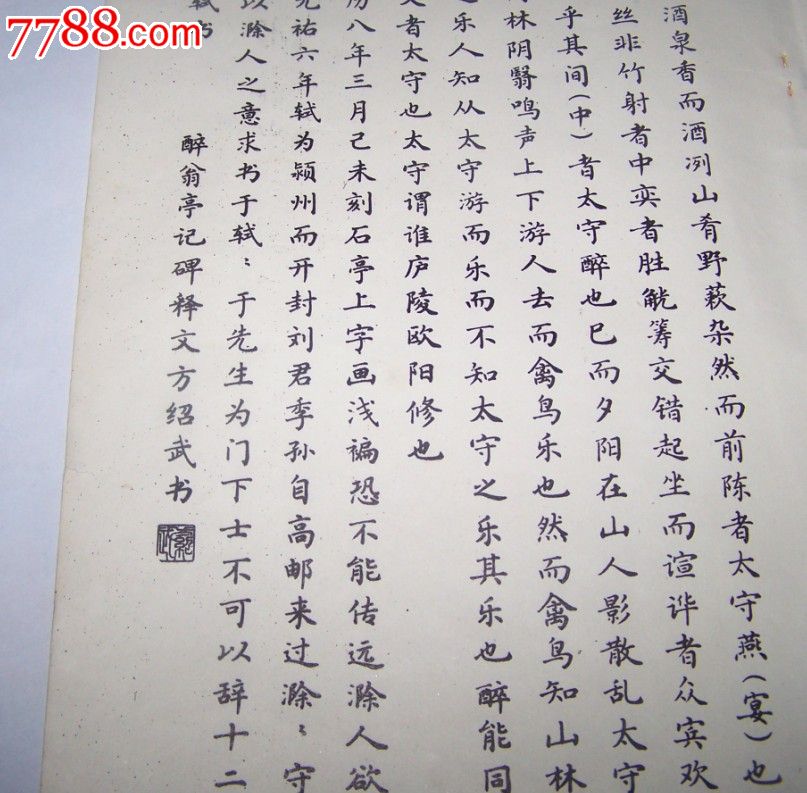 7788.com
酒泉香而酒冽山肴野蔌杂然而前陈者太守燕(宴)也
丝非竹射者中奕者胜觥筹交错起坐而諠譁者众宾欢
乎其间(中)者太守醉也已而夕阳在山人影散乱太守
林阴翳鸣声上下游人去而禽鸟乐也然而禽鸟知山林
之乐人知从太守游而乐而不知太守之乐其乐也醉能同
者太守也太守谓谁庐陵欧阳修也
八年三月己未刻石亭上字画浅褊恐不能传远滁人欲
祐六年轼为颍州而开封刘君季孙自高邮来过滁:守
以滁人之意求书于轼:于先生为门下士不可以辞十二
轼书
醉翁亭记碑释文方绍武书